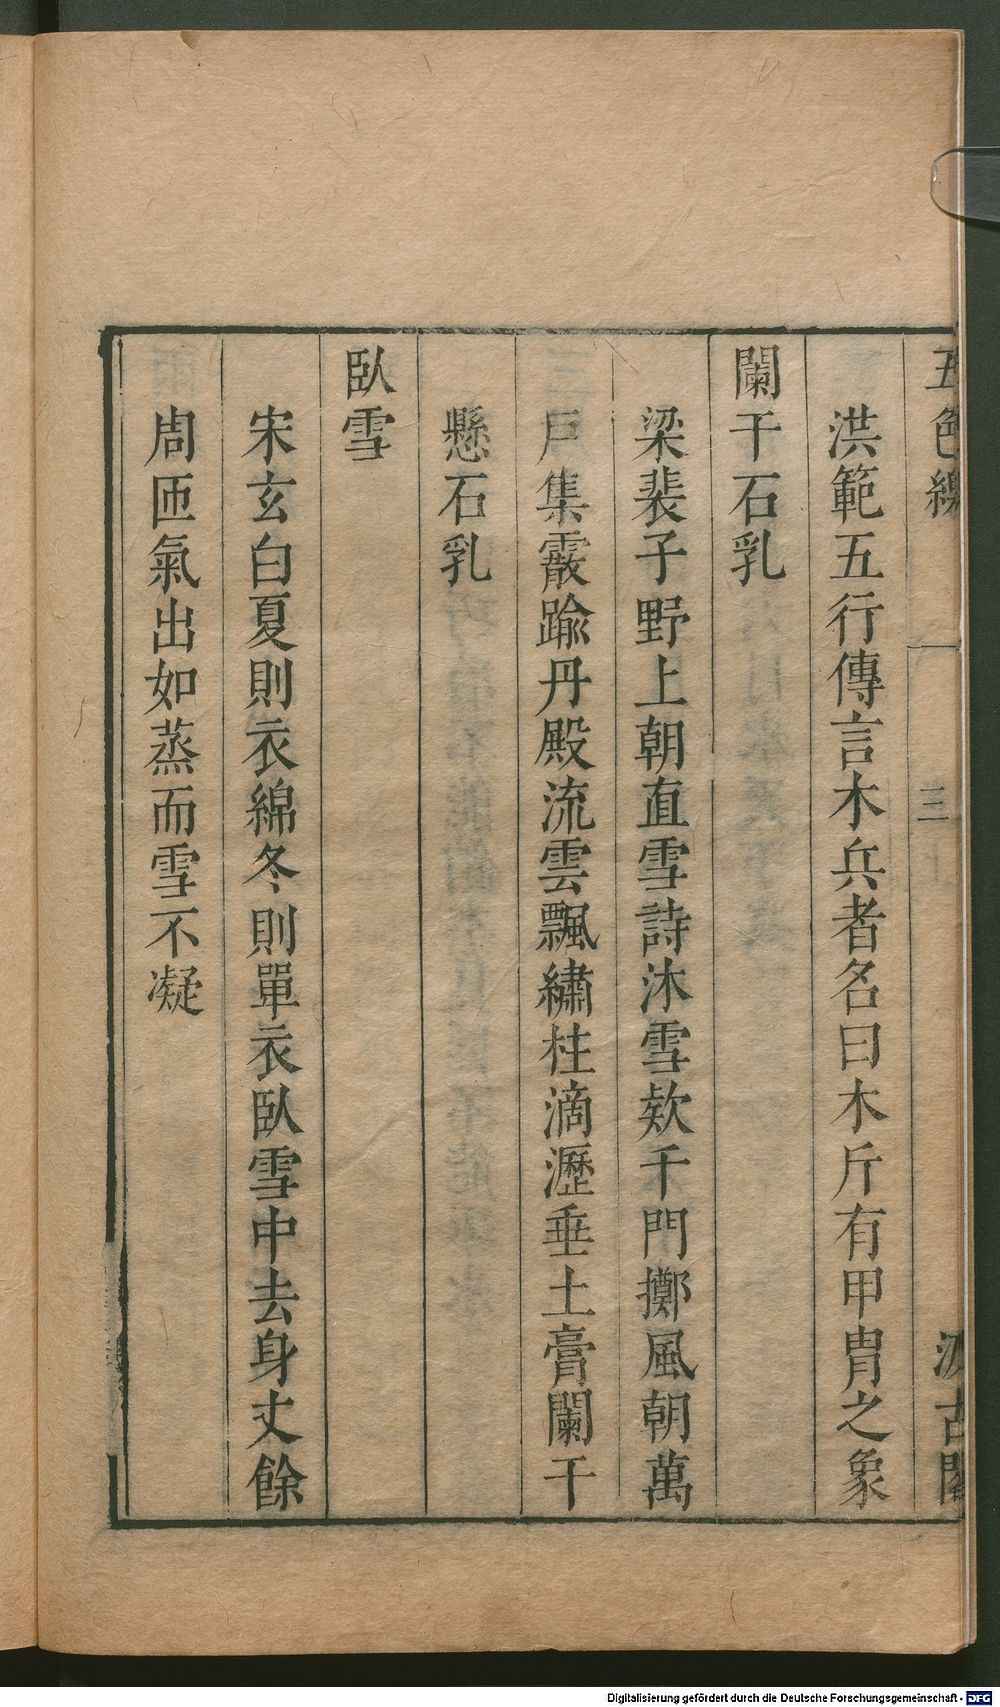 五色線
三
汲古閣
洪範五行傳言木兵者名曰木斤有甲胄之象
闌干石乳
梁裴子野上朝直雪詩沐雪欵千門擲風朝萬
戶集霰踰丹殿流雲飄繡柱滴瀝垂土膏闌干
懸石乳
臥雪
宋玄白夏則衣綿冬則單衣臥雪中去身丈餘
周匝氣出如蒸而雪不凝
Digitalisierung gefördert durch die Deutsche Forschungsgemeinschaft - DFG